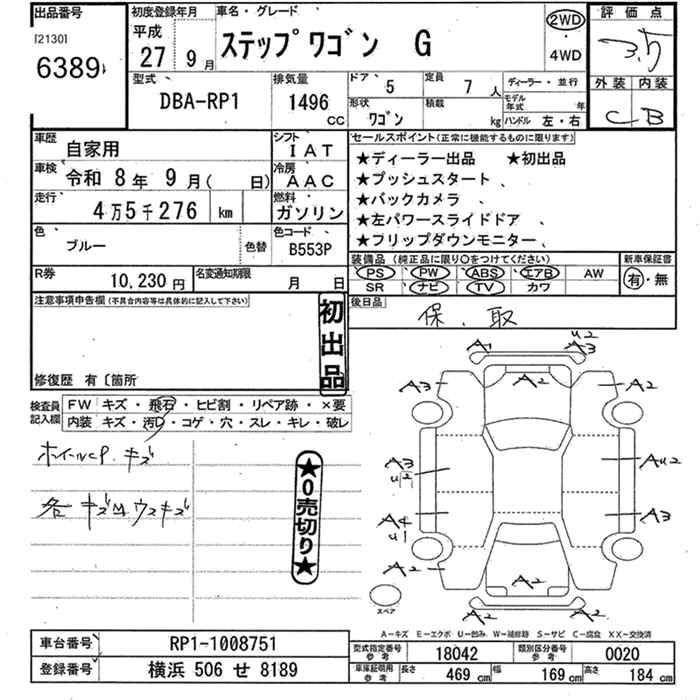 出品番号 初度登録年月 車名・グレード 評価点
[2130] 平成 27 9月 ステップワゴン G 2WD 3.5
6389 4WD 外装 内装
型式 排気量 ドア 5 定員 7人 ディーラー・並行 C B
DBA-RP1 1496 cc 形状 ワゴン 積載 kg モデル年式 年
ハンドル 左・右
車歴 自家用 シフト IAT セールスポイント(正常に機能するものに限ります)
車検 令和 8年 9月( 日) 冷房 AAC ★ディーラー出品 ★初出品
走行 4万5千276 km 燃料 ガソリン ★プッシュスタート、
★バックカメラ、
★左パワースライドドア、
★フリップダウンモニター、
色 ブルー 色替 色コード B553P
装備品(純正品に限り○をつけてください) 新車保証書
PS PW ABS エアB AW 有・無
SR ナビ TV カワ
R券 10,230円 名変通知期限 月 日
後日品 保、取
注意事項申告欄(不具合内容等は具体的に記入して下さい)
初出品
修復歴 有〔箇所
検査員記入欄 FW キズ・飛石・ヒビ割・リペア跡・×要
内装 キズ・汚れ・コゲ・穴・スレ・キレ・破レ
ホイールCP. キズ
各 キズM ウスキズ
★0売切り★
A1 U2 A3
A3 A2 A2
A3 U2 AU2
A4 U1 A3
A2 A2 A2
スペア
A2
A-キズ E-エクボ U-凹み W-補修跡 S-サビ C-腐食 XX-交換済
車台番号 RP1-1008751
型式指定番号 参考 18042 類別区分番号 参考 0020
登録番号 横浜 506 せ 8189
車庫証明用 参考 長さ 469 cm 幅 169 cm 高さ 184 cm